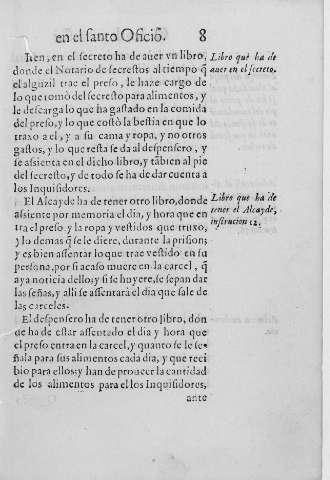 en el santo Oficiõ. 8
Iten, en el secreto ha de auer vn libro,
donde el Notario de secrestos al tiempo q̃
el alguzil trae el preso, le haze cargo de
lo que tomò del secresto para alimentos, y
le descarga lo que ha gastado en la comida
del preso, y lo que costò la bestia en que lo
traxo a el, y a su cama y ropa, y no otros
gastos, y lo que resta se da al despensero, y
se assienta en el dicho libro, y tãbien al pie
del secresto, y de todo se ha de dar cuenta à
los Inquisidores.
El Alcayde ha de tener otro libro, donde
assiente por memoria el dia, y hora que en
tra el preso, y la ropa y vestidos que truxo,
y lo demas q̃ se le diere, durante la prision;
y es bien assentar lo que trae vestido en su
persona, por si acaso muere en la carcel, q̃
aya noticia dello; y si se huyere, se sepan dar
las señas, y alli se assentarà el dia que sale de
las carceles.
El despensero ha de tener otro libro, don
de ha de estar assentado el dia y hora que
el preso entra en la carcel, y quanto se le se
ñala para sus alimentos cada dia, y que reci
bio para ellos; y han de proueer la cantidad
de los alimentos para ellos Inquisidores,
ante
Libro que ha de
auer en el secreto.
Libro que ha de
tener el Alcayde,
instrucion 12.